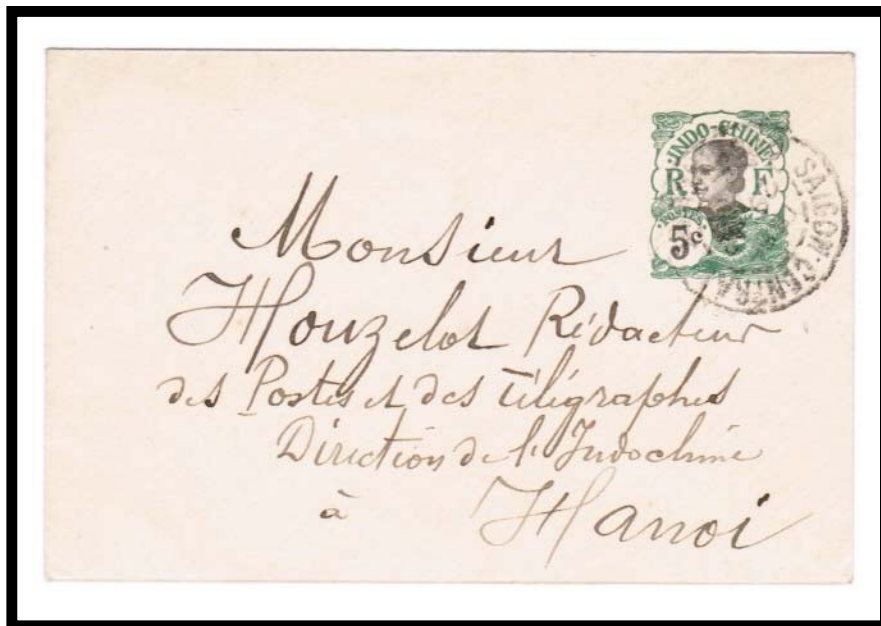 INDO-CHINE
R F
POSTES
5c
SAIGON-CENTRAL
Monsieur
Houzelot Rédacteur
des Postes et des Télégraphes
Direction de l'Indochine
à Hanoi